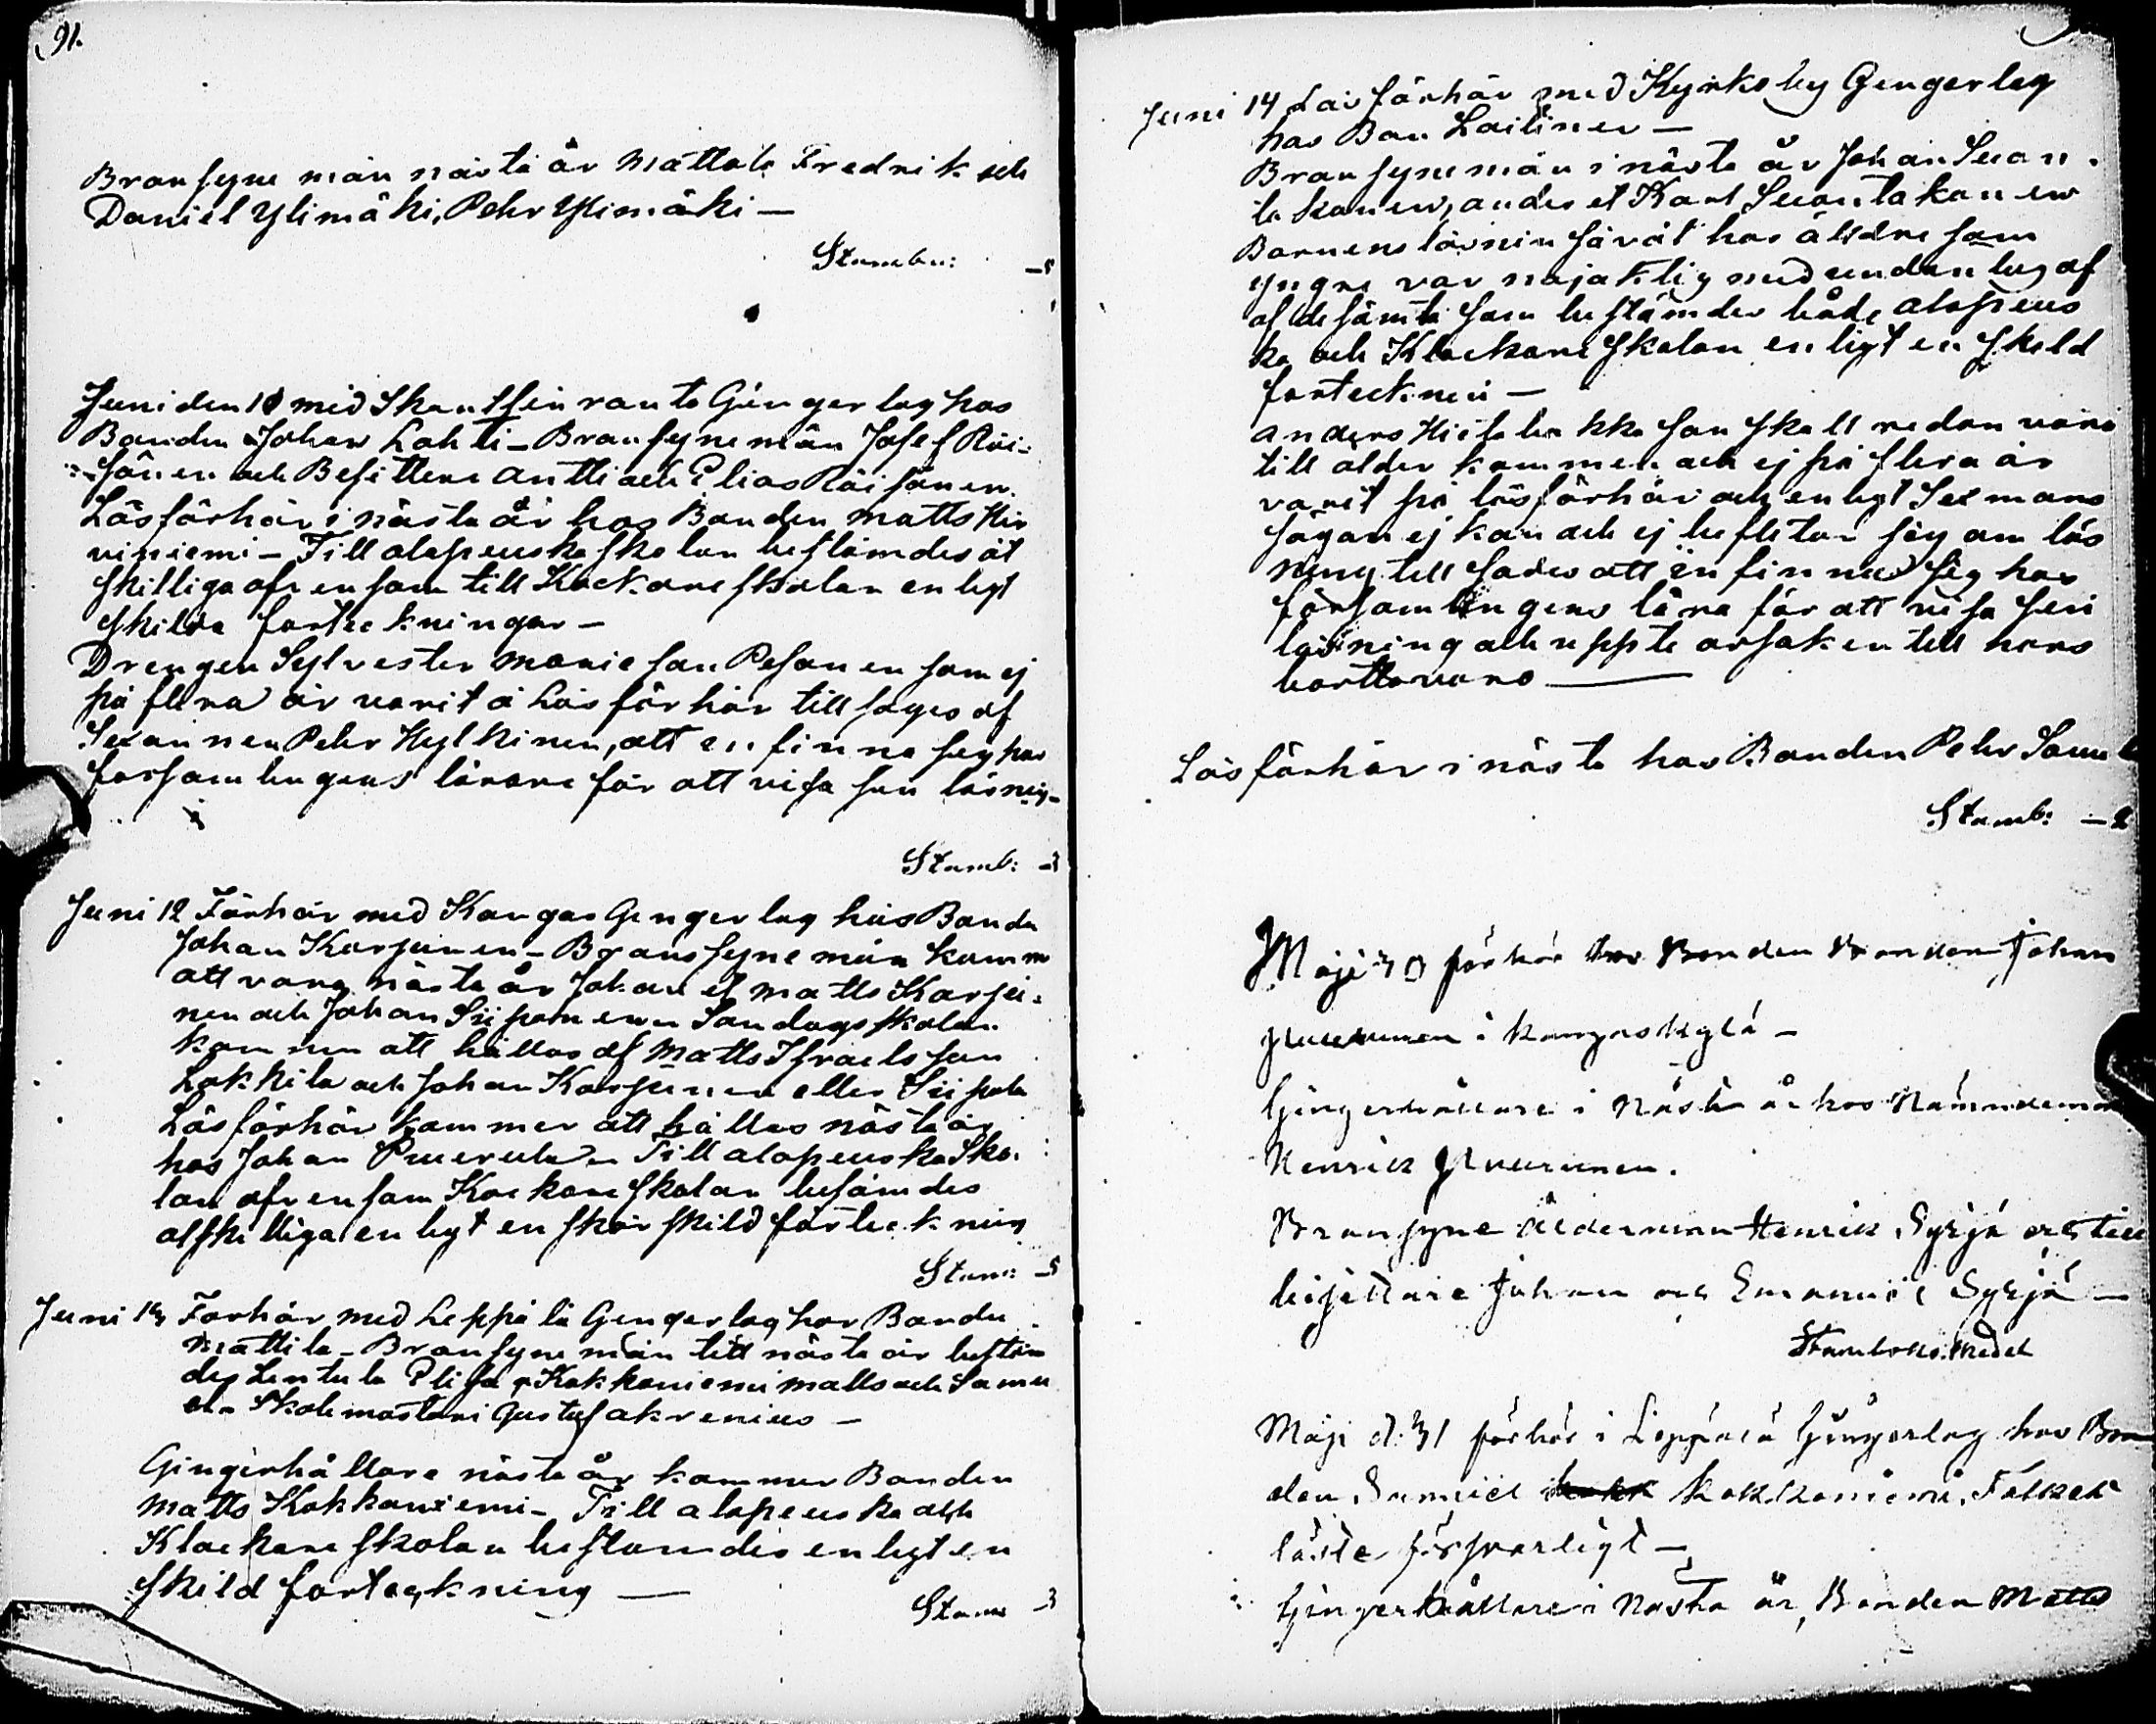 91.
Bransyne män nästa år Mattala Fredrik och
Daniel Ylimäki, Pehr Ylimäki —
Stambu: —5
Juni den 10 med Skantsinranta Gingerlag hos
Bonden Johan Lahti – Bransynemän Josef Räi-
sänen och Besittere Antti och Elias Räisänen.
Läsförhör i nästa år hos Bonden Matts Hir
viniemi – Till alapeuska skolan bestämdes åt
skilliga ofvensom till Kockareskolan enligt
skilda forteckningar –
Drengen Sylvester Mariesson Pesonen som ej
på flera år varit å Läsförhör tillsages af
Sexannen Pehr Hylkinen, att enfinna sig hos
forsamlingens lärare för att visa sin läsning–
Stamb: –3
Juni 12 Förhör med Kangas Gengerlag hos Bonde
Johan Karjunen – Bransyne män komm
att vara nästa år Johan et Matts Karju-
nen och Johan Siiponen – Sondagsskolan
kommen att hållas af Matts Israelsson
Lakkila och Johan Karjunen eller Siipola
Läsförhör kommer att hållas nästa år
hos Johan Puurula – Till alapeuska Sko-
lan ofvensom Kockareskolan besämdes
atskilliga enligt en skär skild förteckning
Stam: –5
Juni 13 Forhör med Leppälä Gengerlag hos Bonde
Mattila – Bransyne män till nästa år bestäm
des Lentula Elisa, Kokkoniemi Matts och Samu
el – Skolemastare Gustaf Akrenius –
Gingerhållare nästa år kommer Bonden
Matts Kokkoniemi – Till alapeuska och
Klockare skolan bestamdes enligt en
skild forteckning —
Stam –3
Juni 14 Läsförhör med Kyrkoby Gengerlag
hos Bon Laitinen –
Bransynemän i nästa år Johan Suan-
takanen, andes et Karl Suontakanen
Barnens läsnin såvät hos äldre som
yngre var nöjaktlig med undantag af
af de sämta som bestämdes både alapeus
ka och Klockare skolan enligt en skild
forteckneng –
Anders Hietalakka son skall redan vara
till ålder kommen och ej på flera år
varit på läsförhör och enligt Sexmans
sägan ej kan och ej beflitar sig om läs
ning till sades att infinna sig hos
församlingens lära för att visa sin
läsning och uppte orsaken till hans
borttavaro —
Läsförhör i nästa hos Bonden Pehr Samu
Stamb: –2
Maji 30 förhör hos Bonden Bonden Johan
i Kangaskylä –
Gingerhållare i nästa år hos Nämndeman
Henrick
Bransyne ålderman Henrik Syrjä och till
bisittare Johan och Emanuel Syrjä –
Stamboks medel
Maji d: 31 förhör i Leppälä Gingerlag hos Bon
den Samuel Kokkoniemi. Folket
läste försvarligt –
Gingerhållare i nästa år, Bonden Matts